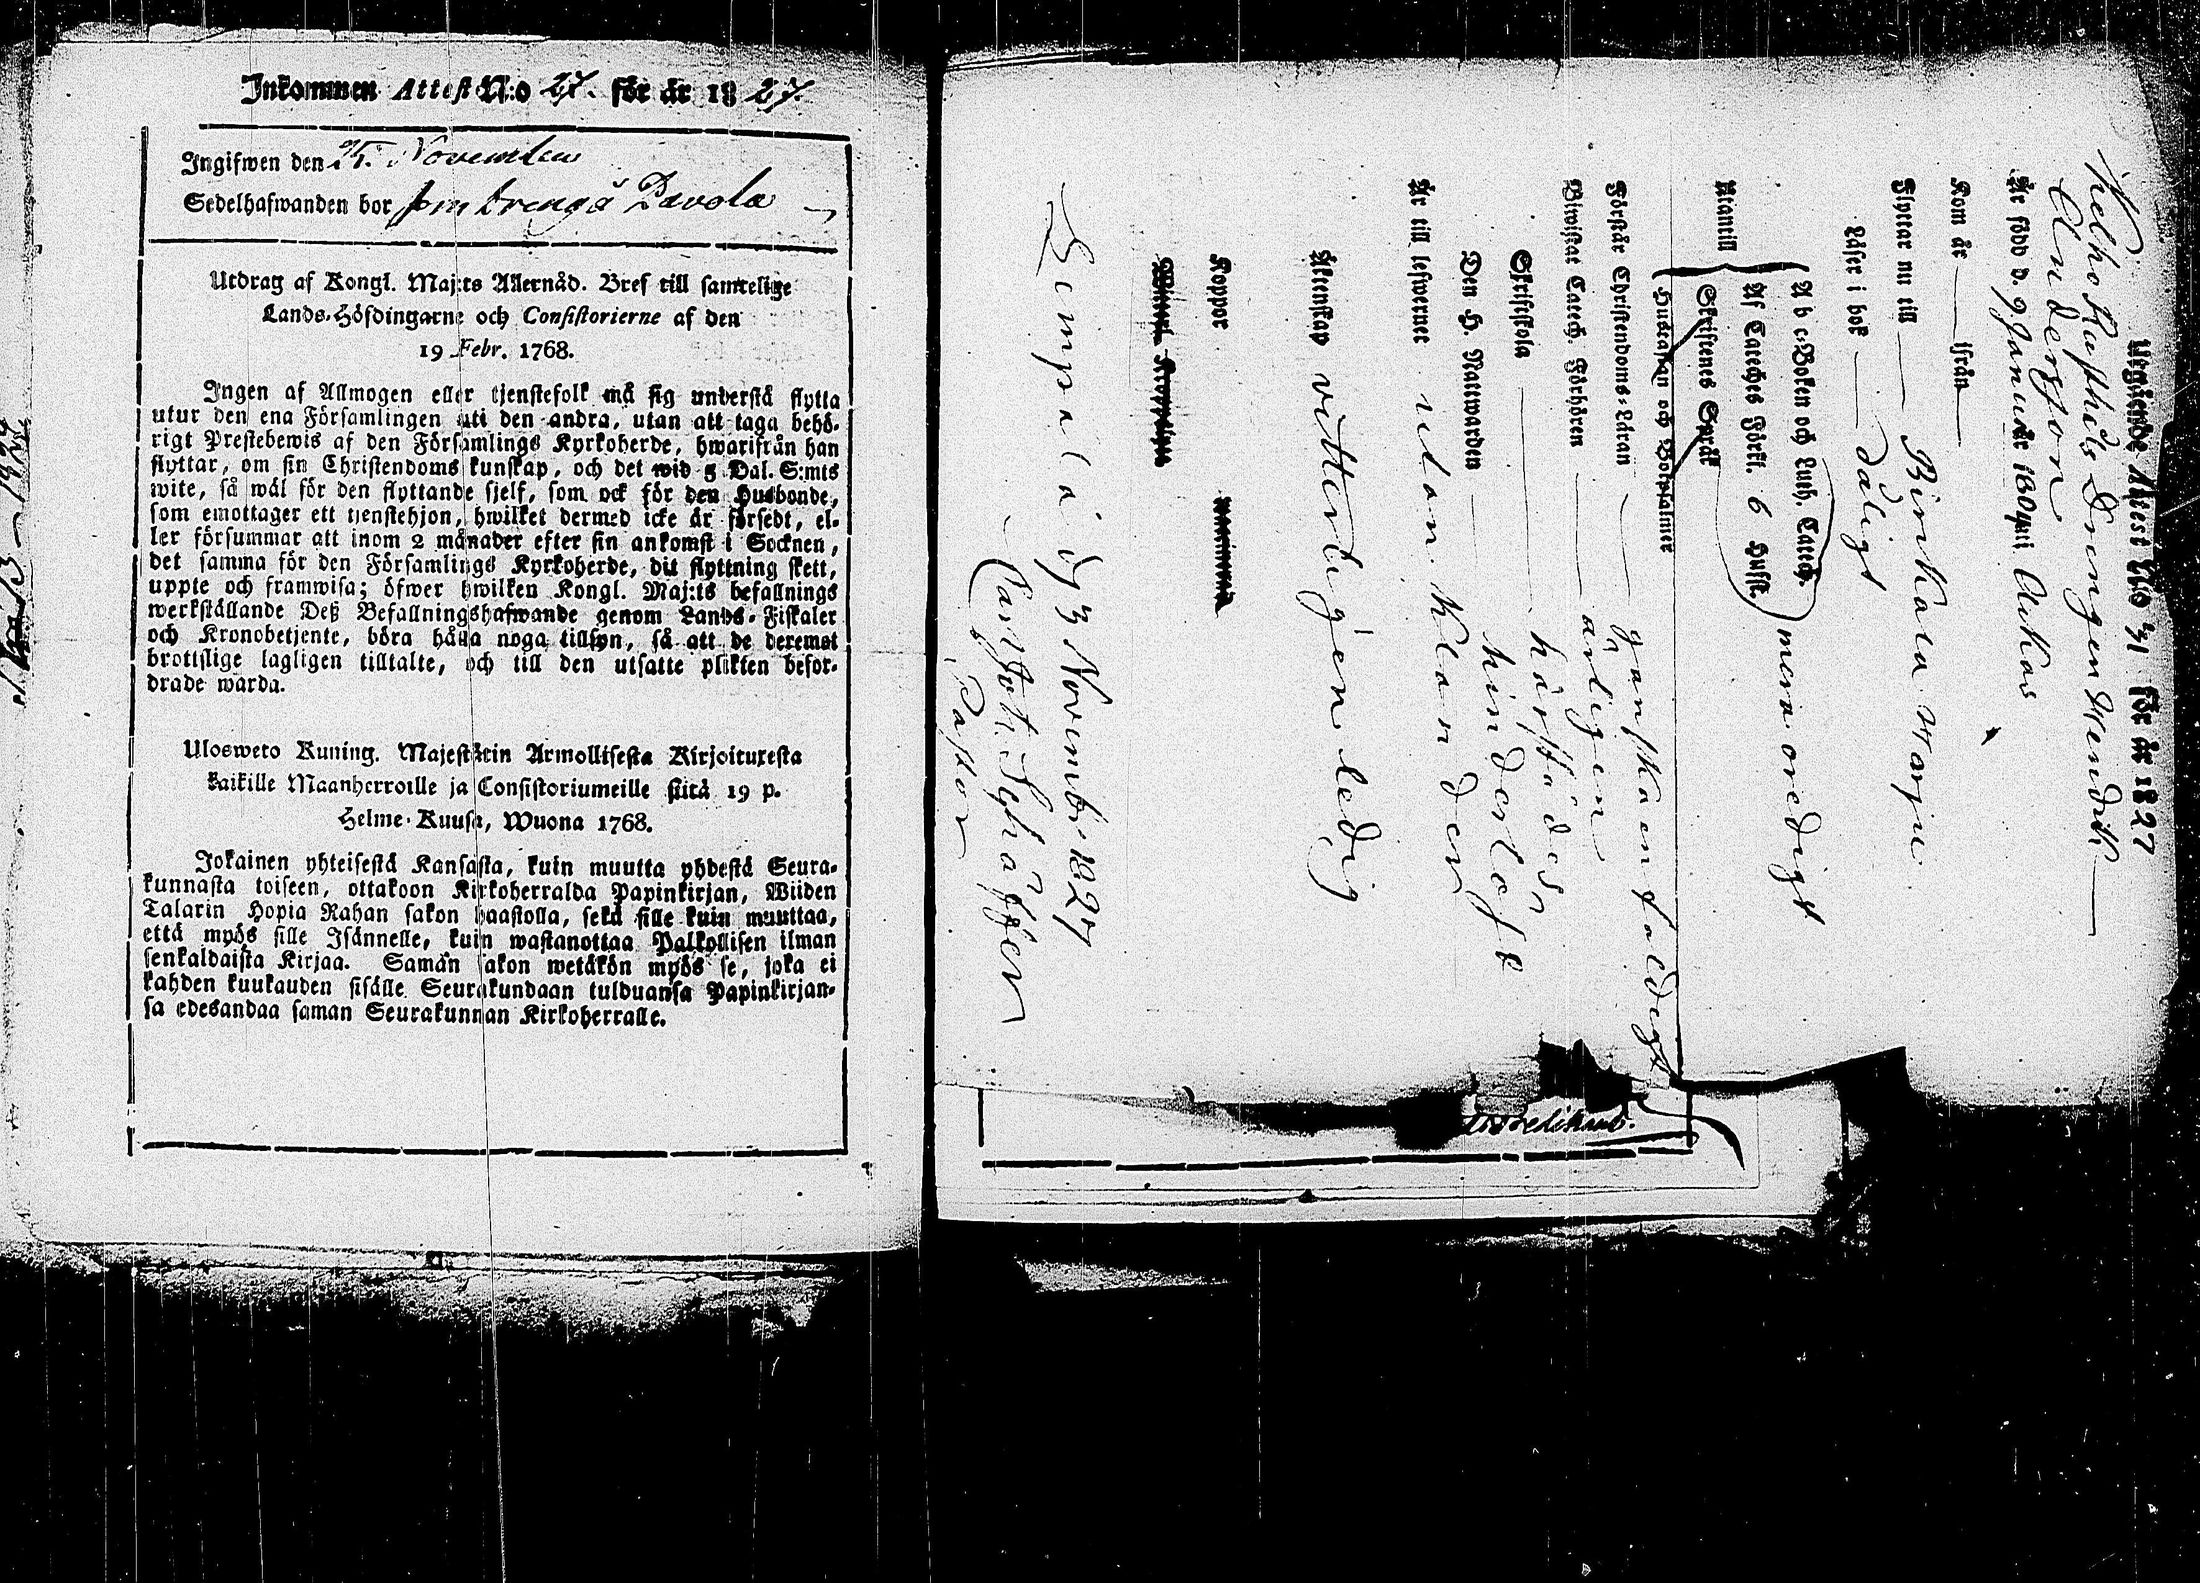 Inkommen Attest N:o 27. för år 1827.
Ingifwen den 25. November
Sedelhafwanden bor som dreng å Pavola
Utdrag af Kongl. Maj:ts Allernåd. Bref till samtelige
Lands-Höfdingarne och Consistorierne af den
19 Febr. 1768.
Ingen af Allmogen eller tjenstefolk må sig understå flytta
utur den ena Församlingen uti den andra, utan att taga behö-
rigt Prestebewis af den Församlings Kyrkoherde, hwarifrån han
flyttar, om sin Christendoms kunskap, och det wid 5 Dal. S:mts
wite, så wäl för den flyttande sjelf, som ock för den Husbonde,
som emottager ett tjenstehjon, hwilket dermed icke är försedt, el-
ler försummar att inom 2 månader efter sin ankomst i Socknen,
det samma för den Församlings Kyrkoherde, dit flyttning skett,
uppte och framwisa; öfwer hwilken Kongl. Maj:ts befallnings
werkställande Deß Befallningshafwande genom Lands-Fiskaler
och Kronobetjente, böra hålla noga tillsyn, så att de deremot
brottslige lagligen tilltalte, och till den utsatte plikten befor-
drade warda.
Ulosweto Kuning. Majestetin Armollisesta Kirjoituxesta
kaikille Maanherroille ja Consistoriumeille siitä 19 p.
Helme-Kuusa, Wuona 1768.
Jokainen yhteisestä Kansasta, kuin muutta yhdestä Seura-
kunnasta toiseen, ottakoon Kirkoherralda Papinkirjan, Wiiden
Talarin Hopia Rahan sakon haastolla, sekä sille kuin muuttaa,
että myös sille Isännelle, kuin wastanottaa Palkollisen ilman
senkaldaista Kirjaa. Saman sakon wetäkön myös se, joka ei
kahden kuukauden sisälle Seurakundaan tulduansa Papinkirjan-
sa edesandaa saman Seurakunnan Kirkoherralle.
Utgående Attest N:o 51 för år 1827
Kelho Rusthålls Drengen Hendrik
Andersson
Är född d. 9 Januar 1804 i
Kom år ifrån
Flyttar nu till Birkala
Läser i bok dåligt
Utantill
A b c-Boken och Luth. Catech.
Af Cateches Förkl. 6 Hufst. mera oredigt
Skriftenes Språk
Hustaflan och Botpsalmer
Förstår Christendoms-Läran ganska enfaldigt
Biwistat Catech. Förhören årligen
Skriftskola
Den H. Nattwarden hinderlöst
Är till lefwerne utan klander
Äktenskap vitterligen ledig
Koppor
Lempälä d. 3 Novemb. 1827
Pastor